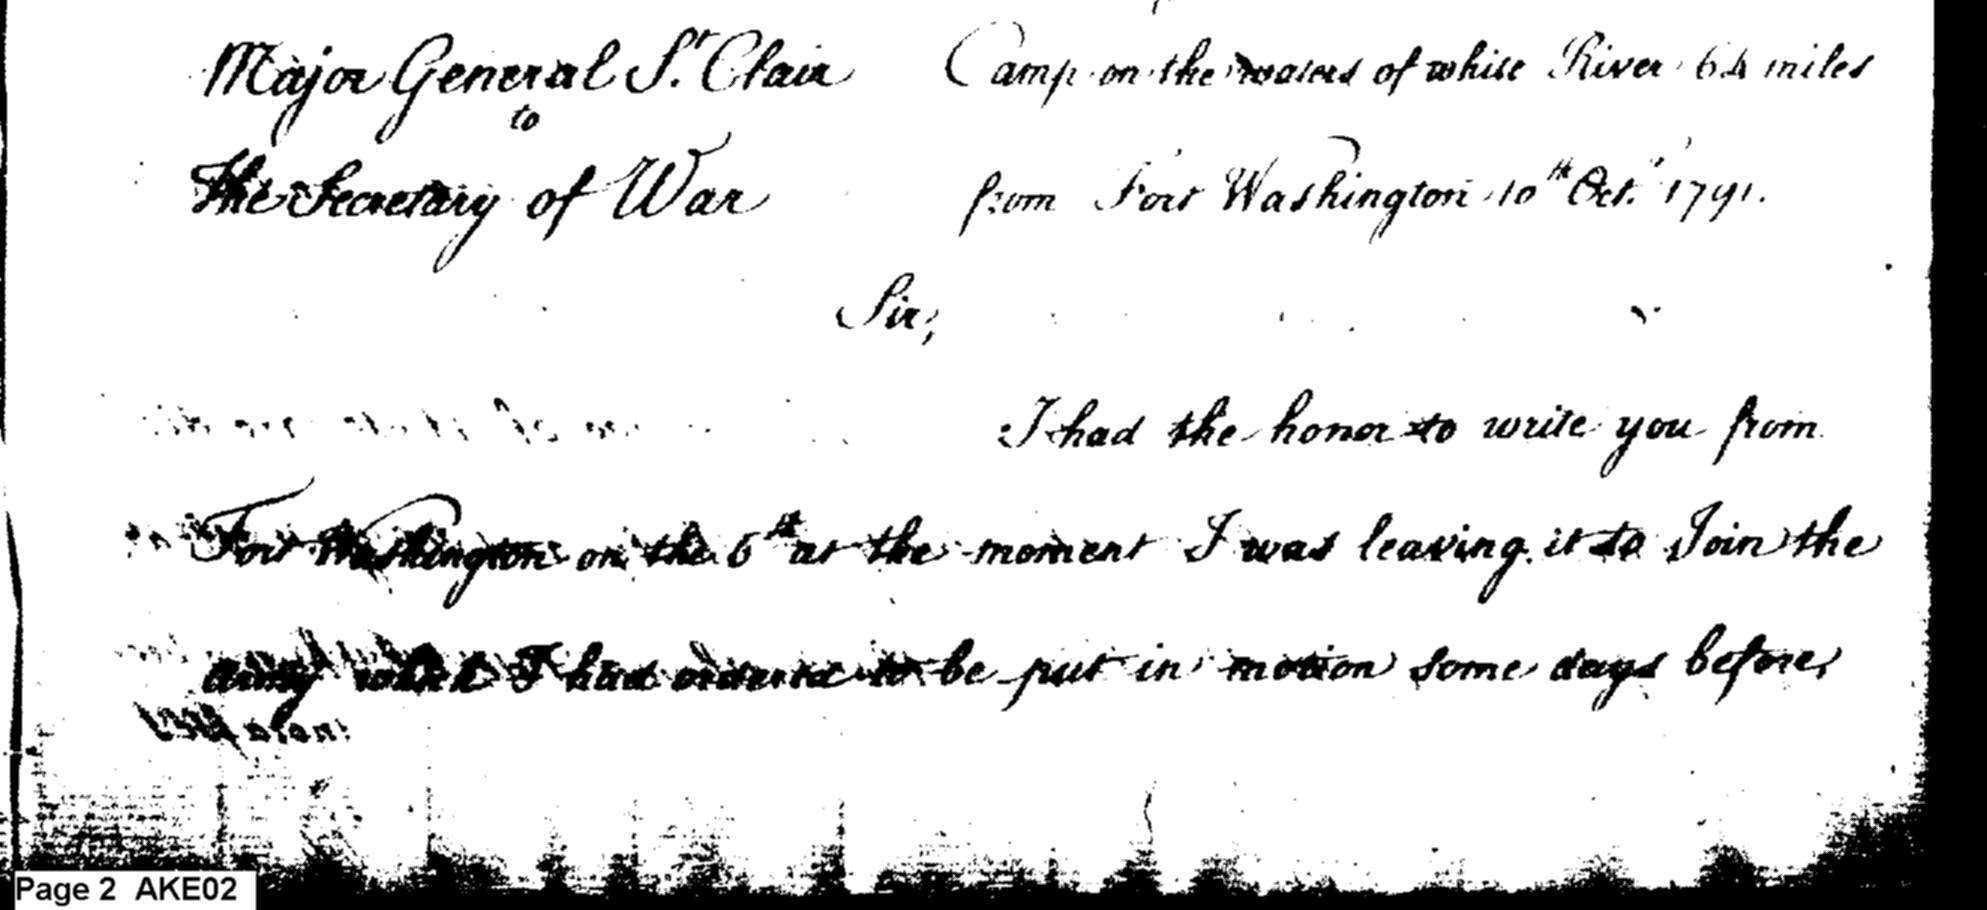 Major General St. Clair
to
the Secretary of War
Camp on the waters of white River 64 miles
from Fort Washington 10th Oct. 1791.
Sir,
I had the honor to write you from
Fort Washington on the 6th at the moment I was leaving it to Join the
army which I had ordered to be put in motion some days before,
Page 2 AKE02